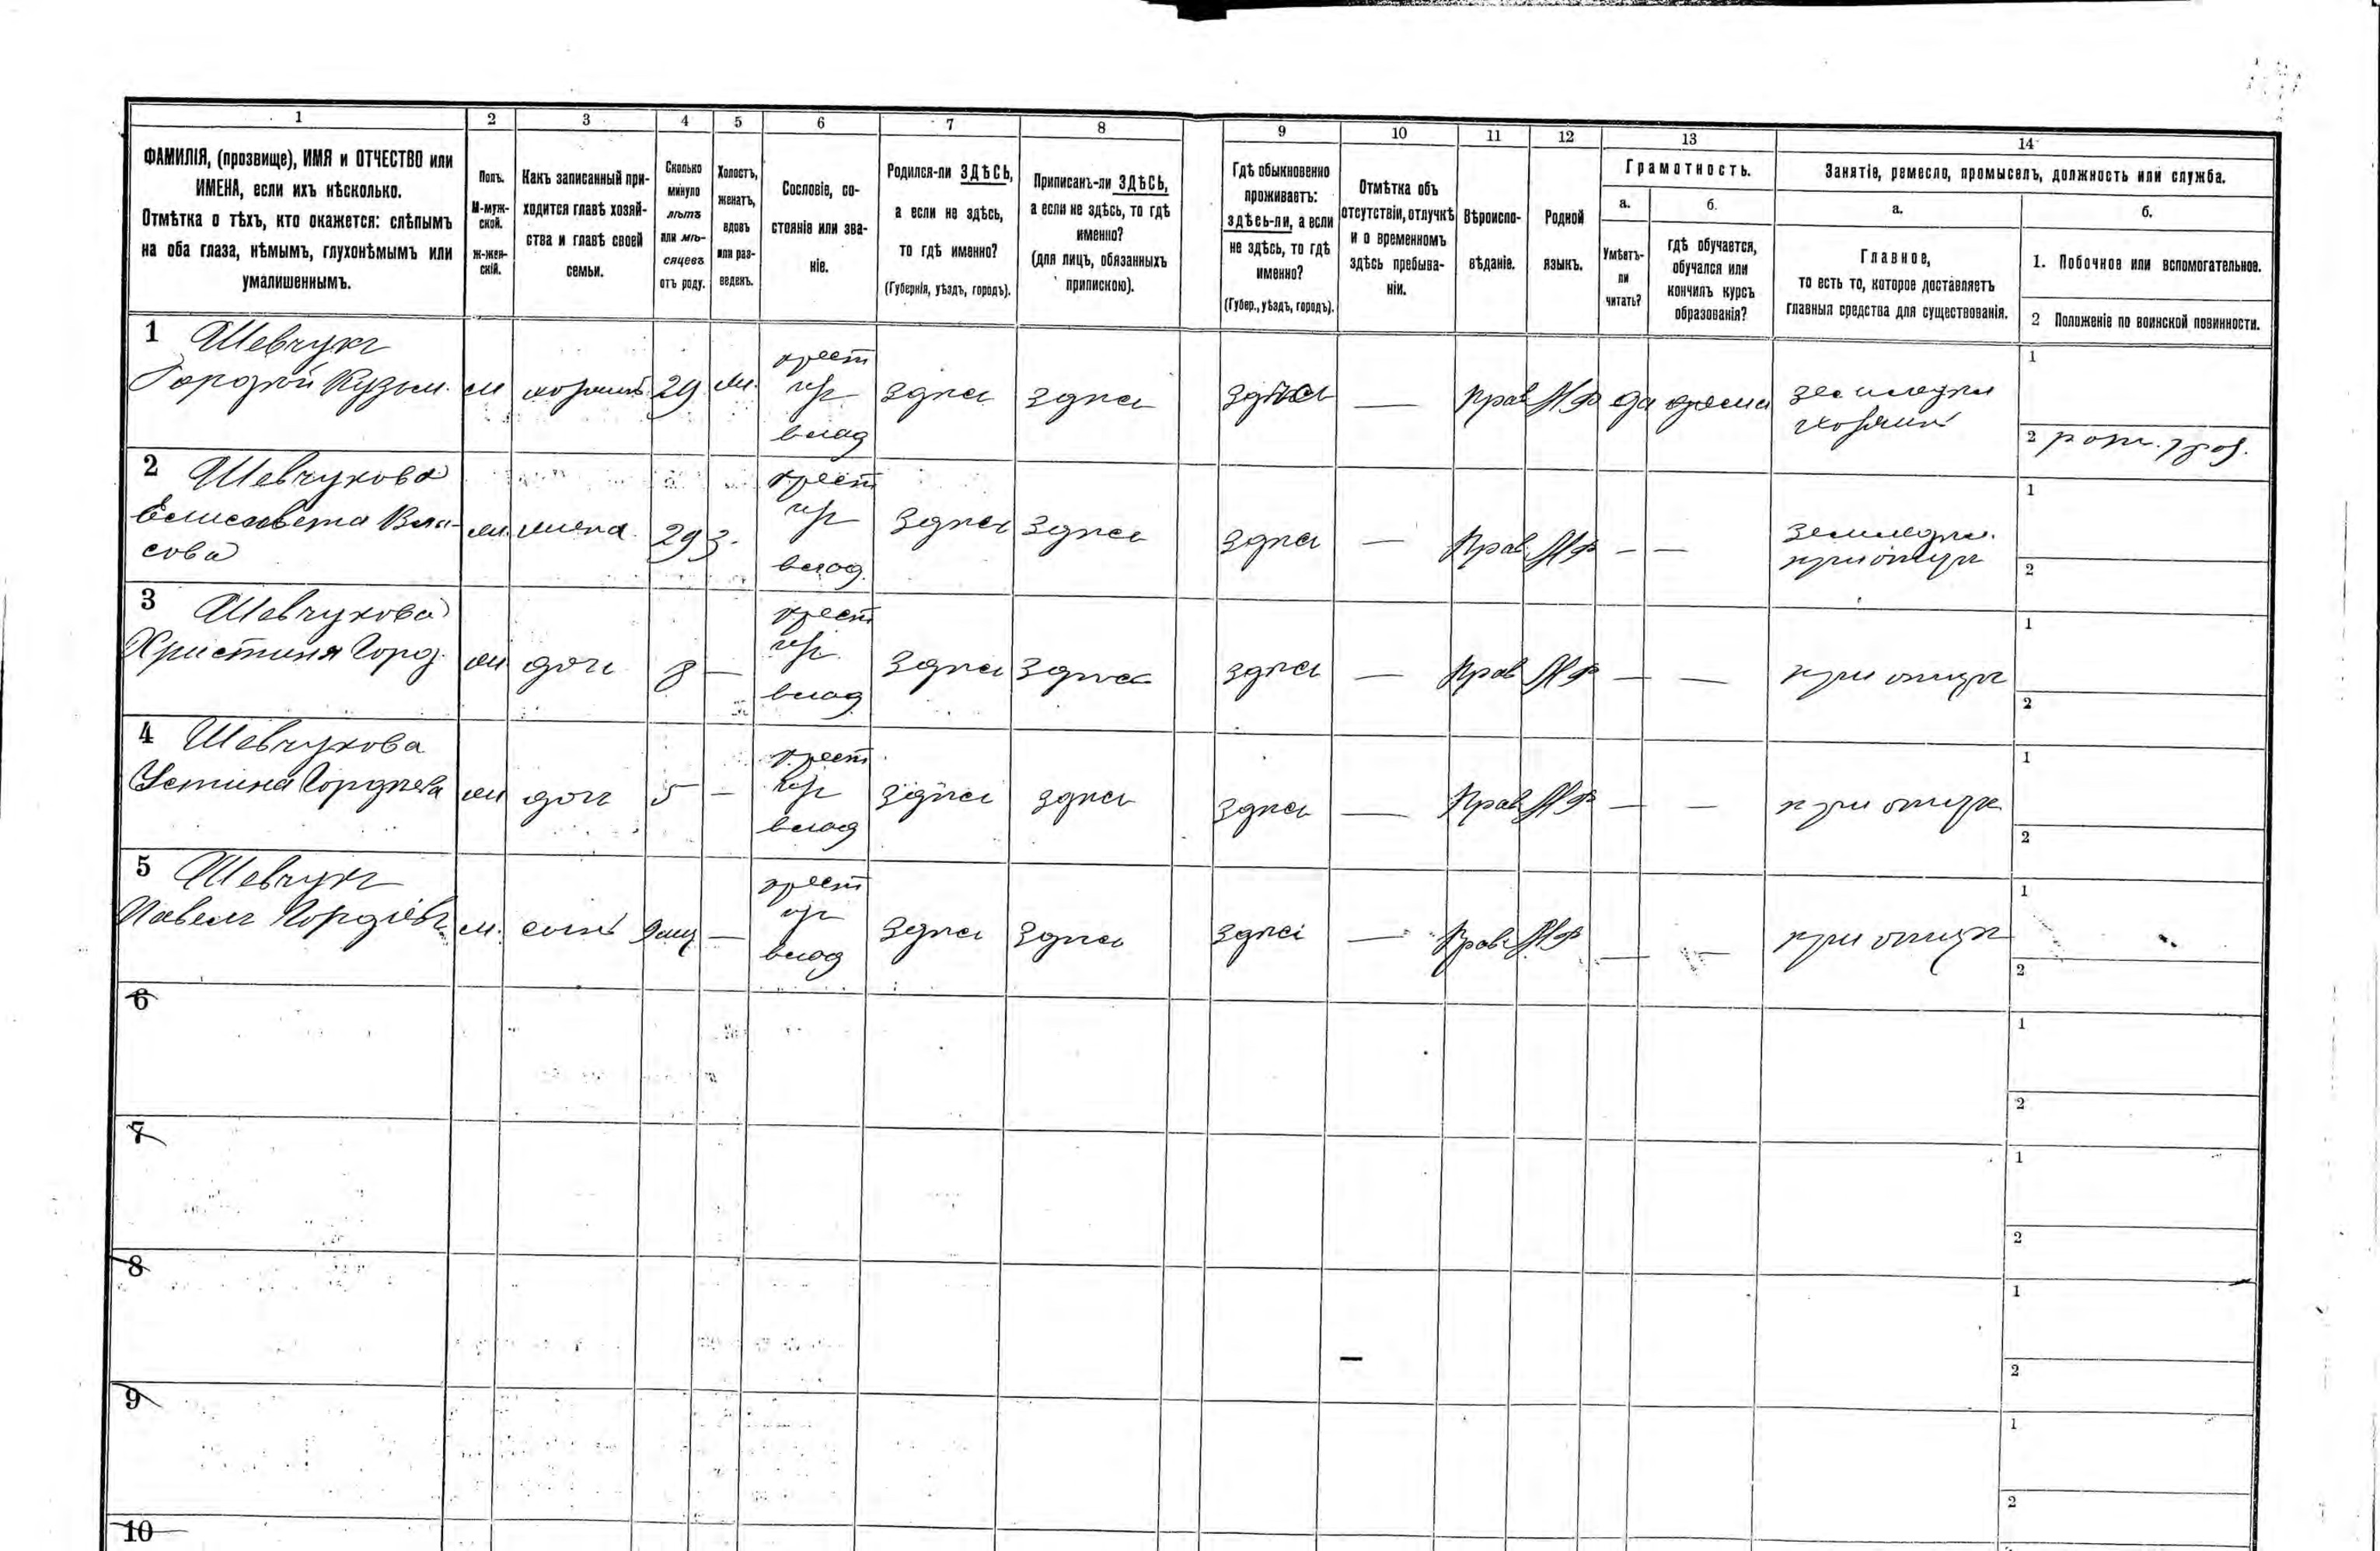 1 2 3 4 5 6 7 8 9 10 11 12 13 14
ФАМИЛІЯ, (прозвище), ИМЯ и ОТЧЕСТВО или
ИМЕНА, если ихъ нѣсколько.
Отмѣтка о тѣхъ, кто окажется: слѣпымъ
на оба глаза, нѣмымъ, глухонѣмымъ или
умалишеннымъ.
Полъ.
М-муж-
ской.
Ж-жен-
скій.
Какъ записанный при-
ходится главѣ хозяй-
ства и главѣ своей
семьи.
Сколько
минуло
лѣтъ
или мѣ-
сяцевъ
отъ роду.
Холостъ,
женатъ,
вдовъ
или раз-
веденъ.
Сословіе, со-
стояніе или зва-
ніе.
Родился-ли ЗДѢСЬ,
а если не здѣсь,
то гдѣ именно?
(Губернія, уѣздъ, городъ).
Приписанъ-ли ЗДѢСЬ,
а если не здѣсь, то гдѣ
именно?
(для лицъ, обязанныхъ
припискою).
Гдѣ обыкновенно
проживаетъ:
здѣсь-ли, а если
не здѣсь, то гдѣ
именно?
(Губер., уѣздъ, городъ).
Отмѣтка объ
отсутствіи, отлучкѣ
и о временномъ
здѣсь пребыва-
ніи.
Вѣроиспо-
вѣданіе.
Родной
языкъ.
Грамотность.
а.
Умѣетъ-
ли
читать?
б.
гдѣ обучается,
обучался или
кончилъ курсъ
образованія?
Занятіе, ремесло, промыселъ, должность или служба.
а.
Главное,
то есть то, которое доставляетъ
главныя средства для существованія.
б.
1. Побочное или вспомогательное.
2 Положеніе по воинской повинности.
1 Шевчукъ
Гордѣй Кузьм. м хозяинъ 29 ж.
крест
влад
здѣсь здѣсь здѣсь — Прав да дома
земледѣл
хозяинъ
1
2
2 Шевчукова
Елисавета Вла-
сова ж. жена 29 з.
крест
влад.
здѣсь здѣсь здѣсь — Прав. — —
земледѣл.
при отцѣ
1
2
3 Шевчукова
Христиня Горд. ж дочь 8 —
крест
влад
здѣсь здѣсь здѣсь — Прав — — при отцѣ
1
2
4 Шевчукова
Устина Гордѣева ж дочь 5 —
крест
влад
здѣсь здѣсь здѣсь — Прав — — при отцѣ
1
2
5 Шевчукъ
Павелъ Гордіевъ м. сынъ 9 мц —
крест
влад
здѣсь здѣсь здѣсь — Прав. — — при отцѣ
1
2
6
1
2
7
1
2
8
1
2
9
1
2
10